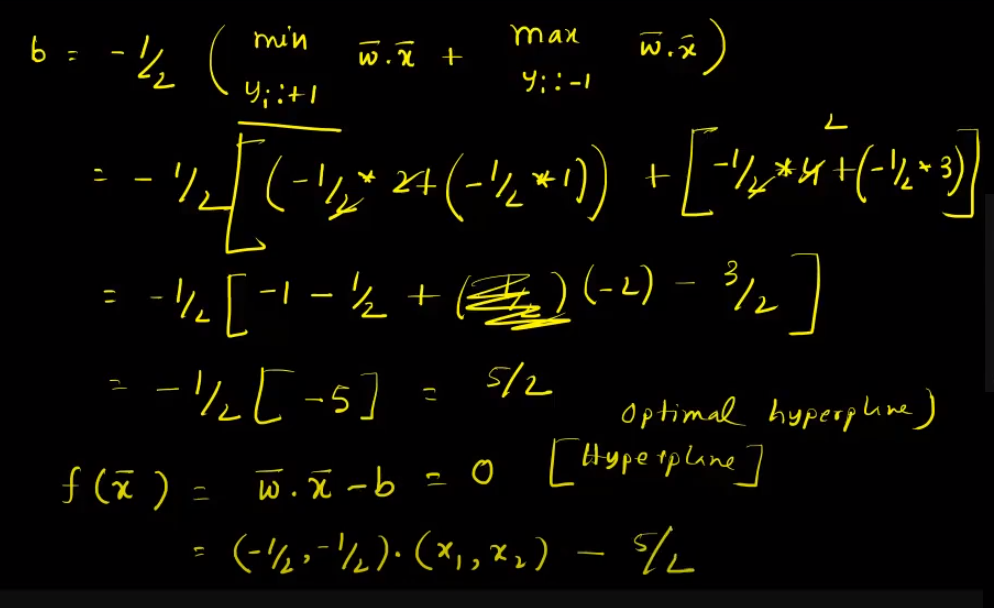 b = -1/2 ( min w̄.x̄ + max w̄.x̄ )
yᵢ:+1 yᵢ:-1
= -1/2 [ (-1/2 * 2 + (-1/2 * 1)) + [ -1/2 * 4 + (-1/2 * 3) ]
2
= -1/2 [ -1 - 1/2 + ( ) (-2) - 3/2 ]
= -1/2 [ -5 ] = 5/2
optimal hyperplane)
f(x̄) = w̄.x̄ - b = 0 [Hyperplane]
= (-1/2, -1/2).(x₁, x₂) - 5/2